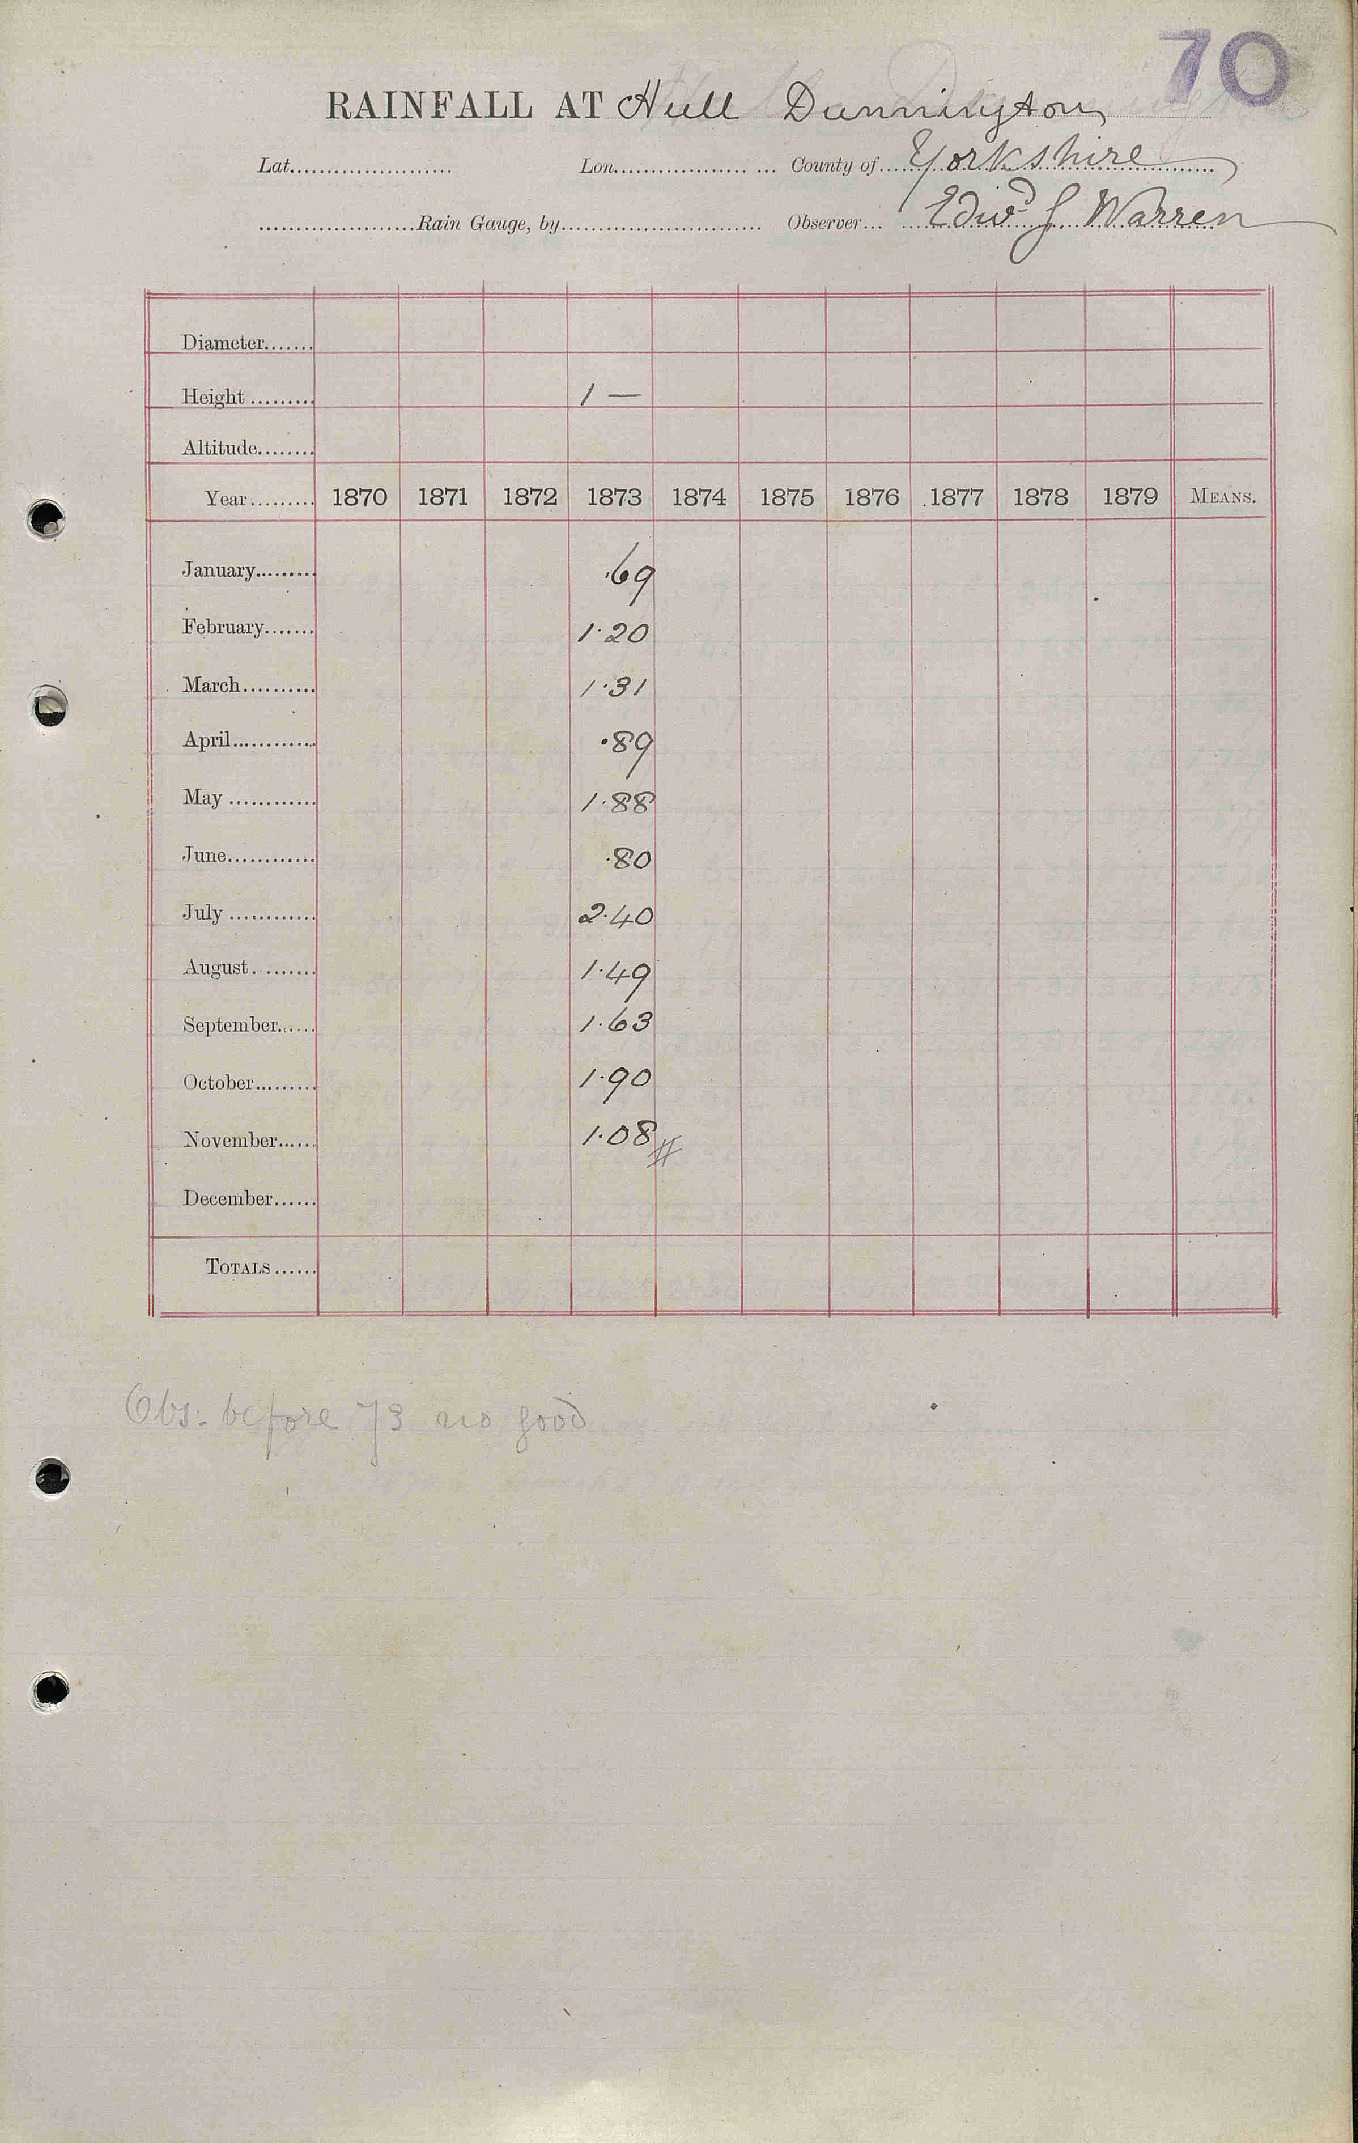 70
RAINFALL AT Hull Dunnington
Lat. Lon. County of Yorkshire
Rain Gauge, by Observer Edwd J Warren
Diameter
Height 1 —
Altitude
Year 1870 1871 1872 1873 1874 1875 1876 1877 1878 1879 MEANS.
January .69
February 1.20
March 1.31
April .89
May 1.88
June .80
July 2.40
August 1.49
September 1.63
October 1.90
November 1.08 #
December
TOTALS
Obs. before 73 no good